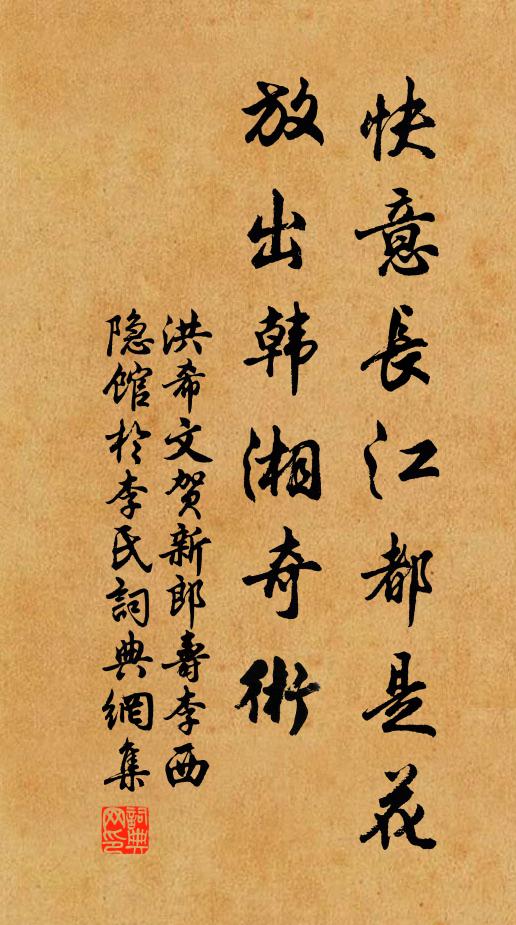 快意長江都是花
放出韩湘奇術
洪希文贺新郎壽李西
隐馆於李氏詞典網集
詞典
网印